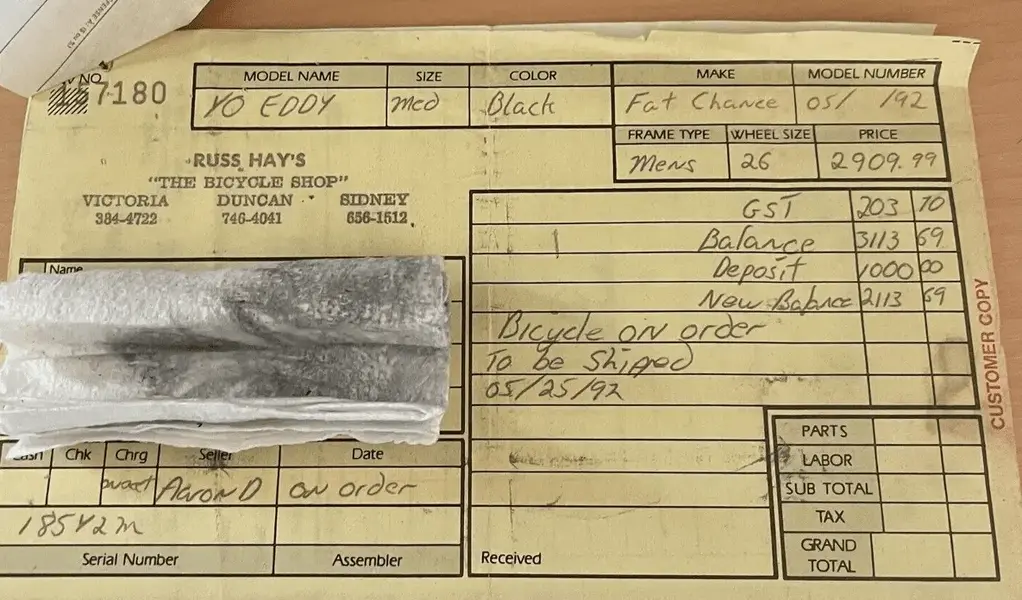 NO
157180
MODEL NAME SIZE COLOR MAKE MODEL NUMBER
YO EDDY med Black Fat Chance 05/ /92
FRAME TYPE WHEEL SIZE PRICE
Mens 26 2909.99
RUSS HAY'S
"THE BICYCLE SHOP"
VICTORIA DUNCAN SIDNEY
384-4722 746-4041 656-1512
GST 203 70
Balance 3113 69
Deposit 1000 00
New Balance 2113 69
Bicycle on order
To be Shipped
05/25/92
CUSTOMER COPY
Name
Cash Chk Chrg Seller Date
Aaron D on order
185Y2m
Serial Number Assembler
Received
PARTS
LABOR
SUB TOTAL
TAX
GRAND TOTAL